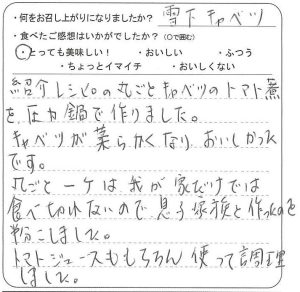 ・何をお召し上がりになりましたか？ 雪下キャベツ
・食べたご感想はいかがでしたか？（○で囲む）
・とっても美味しい！ ・おいしい ・ふつう
・ちょっとイマイチ ・おいしくない
紹介レシピの丸ごとキャベツのトマト煮
を圧力鍋で作りました。
キャベツが柔らかくなり、おいしかった
です。
丸ごと一ケは我が家だけでは
食べ切れないので、息子家族と
しました。
トマトジュースももちろん使って調理
しました。